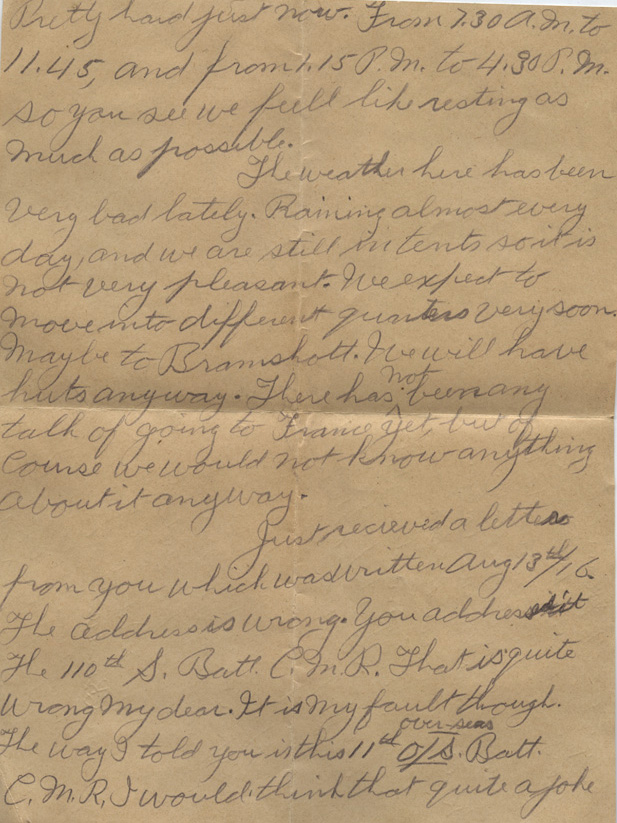 Pretty hard just now. From 7.30 A.M. to
11.45, and from 1.15 P.M. to 4.30 P.M.
so you see we feell like resting as
much as possible.
The weather here has been
very bad lately. Raining almost every
day, and we are still in tents so it is
not very pleasant. We expect to
move into different quarters very soon.
Maybe to Bramshott. We will have
huts anyway. There has not been any
talk of going to France yet, but of
course we would not know anything
about it anyway.
Just recieved a letter
from you which was written Aug 13th/16
The address is wrong. You address it
The 110th S. Batt. C.M.R. That is quite
wrong My dear. It is my fault though.
over-seas
The way I told you is this 11th O/S. Batt.
C.M.R. I would think that quite a joke